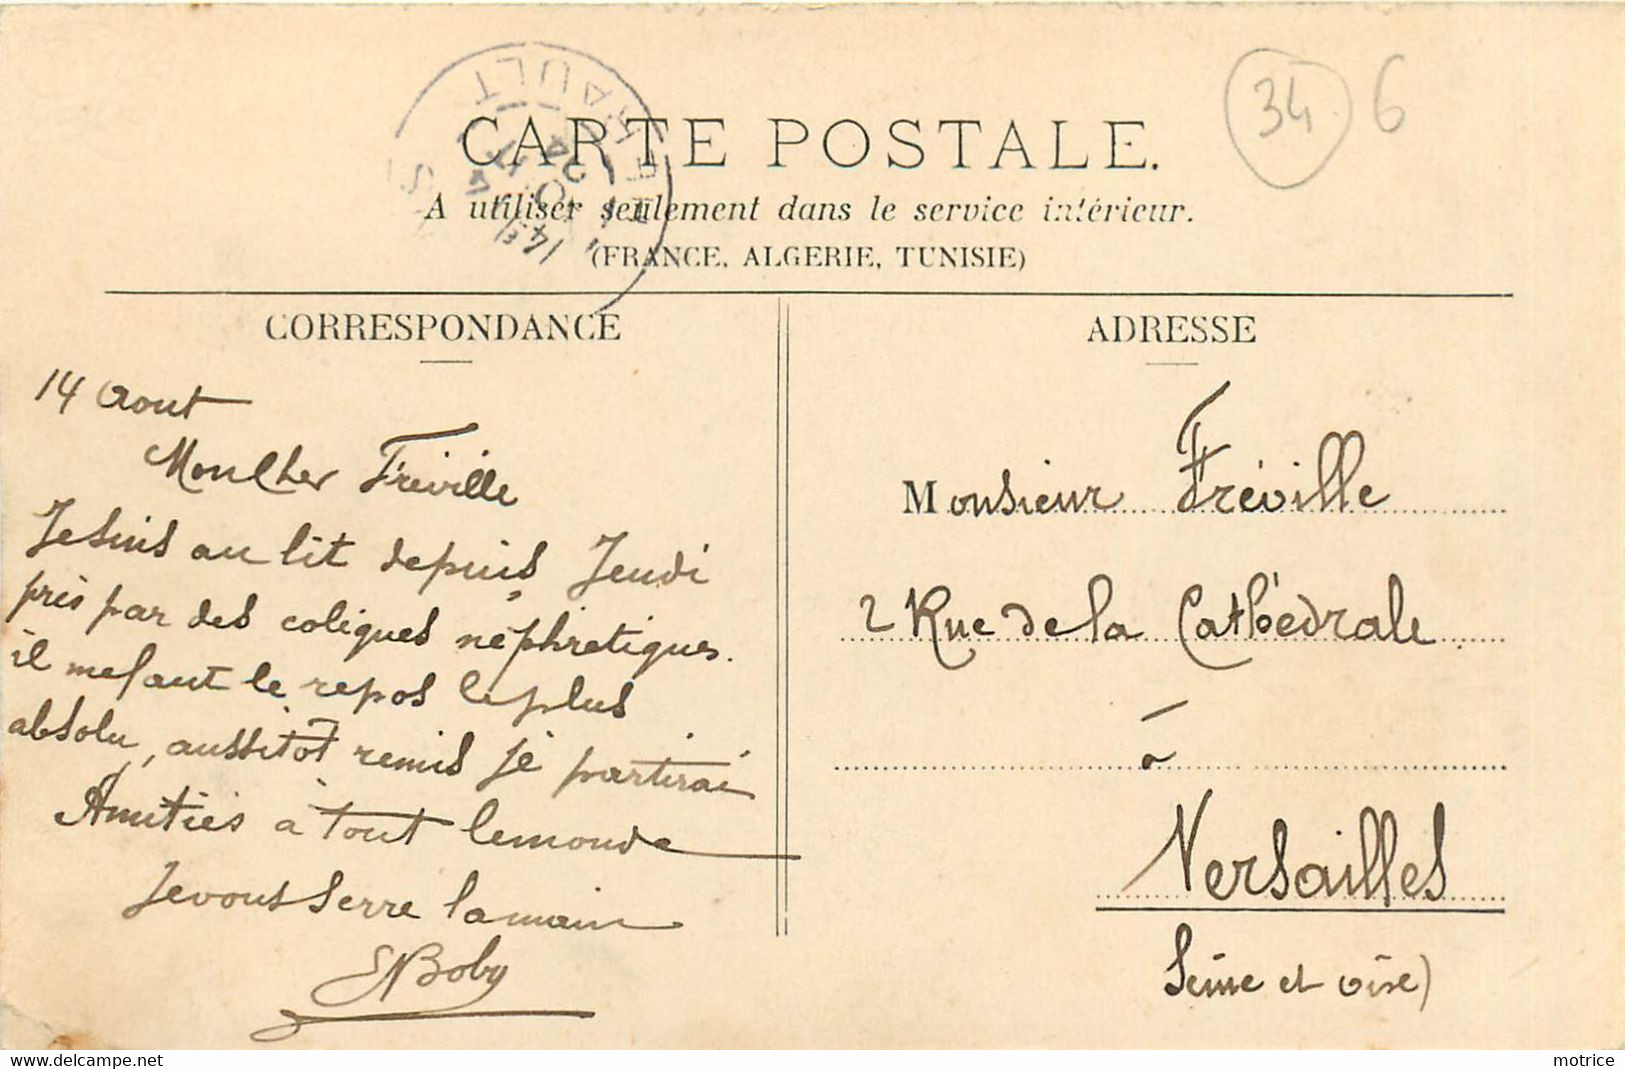 34 6
HERAULT
CARTE POSTALE.
A utiliser seulement dans le service intérieur.
(FRANCE, ALGERIE, TUNISIE)
CORRESPONDANCE
14 Aout
Mon Cher Fréville
Je suis au lit depuis Jeudi
pris par des coliques néphretiques.
il me faut le repos le plus
absolu, aussitôt remis je partirai
Amitiés à tout le monde
Je vous serre la main
Boby
ADRESSE
Monsieur Fréville
2 Rue de la Cathédrale
à
Versailles
Seine et Oise)
delcampe.net
motrice